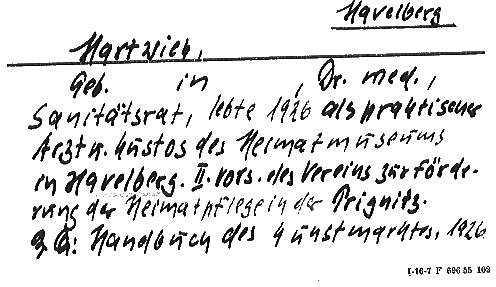 Havelberg
Hartwich,
Geb. in , Dr. med.,
Sanitätsrat, lebte 1926 als praktischer
Arzt u. Kustos des Heimatmuseums
in Havelberg. II. Vors. des Vereins zur Förde-
rung der Heimatpflege in der Prignitz.
Handbuch des Kunstmarktes, 1926
I-16-7 F 696 55 109